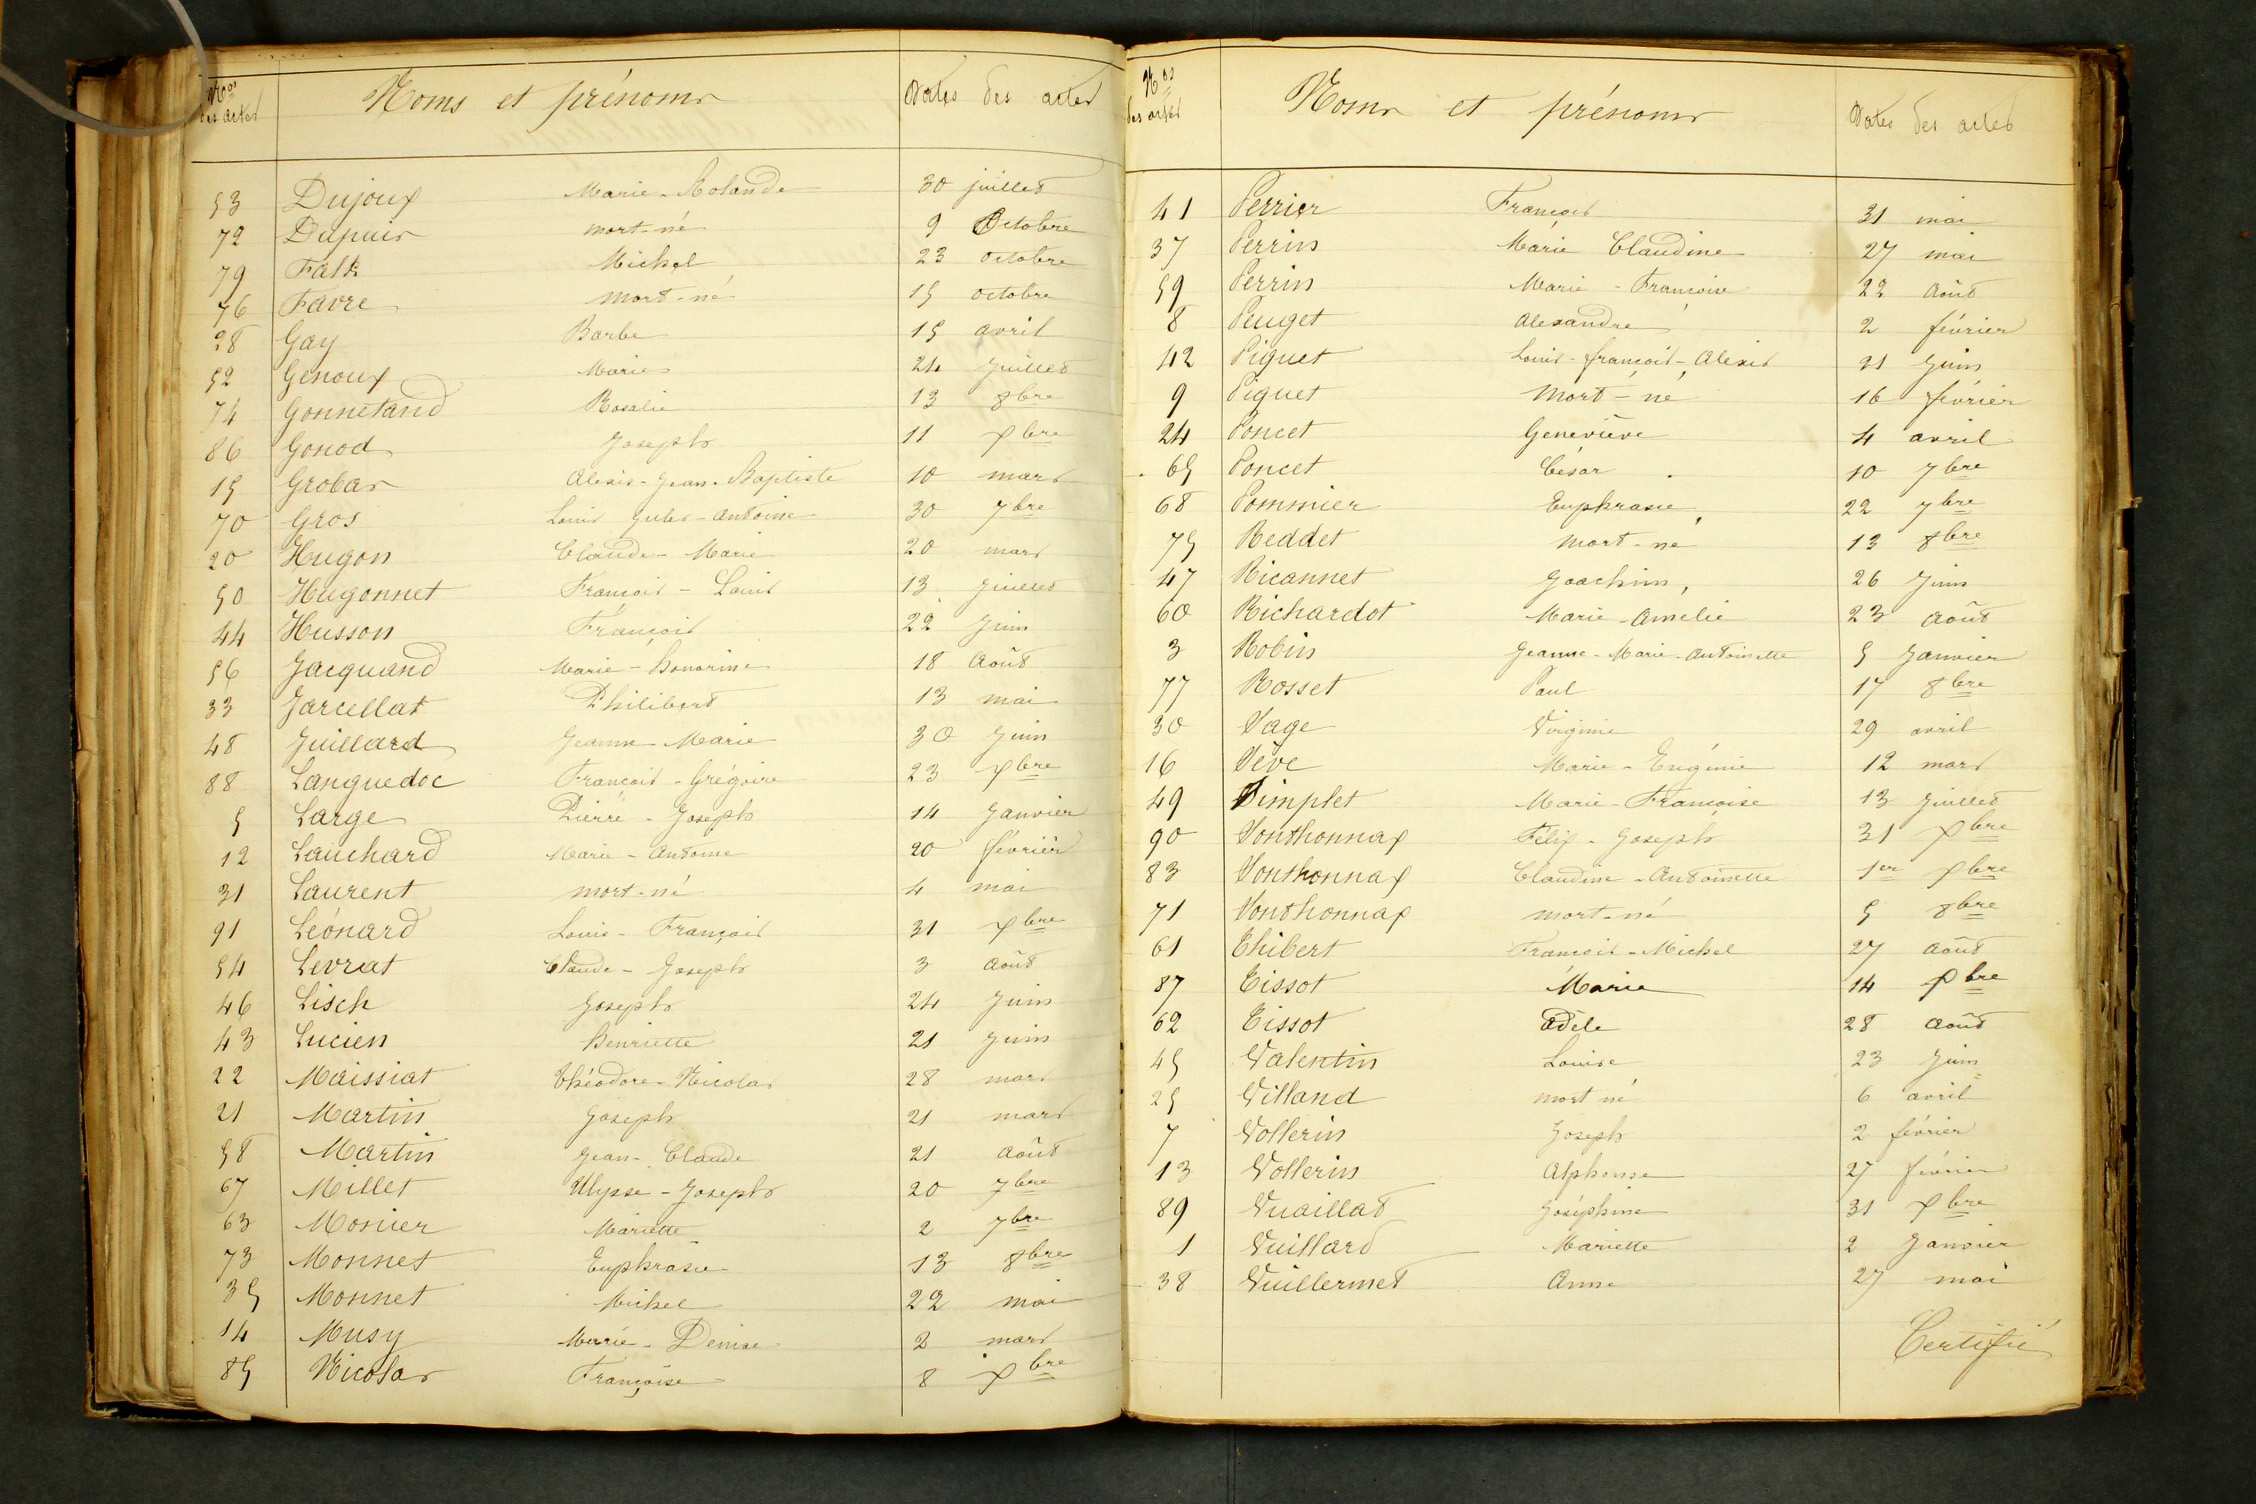 Nos des actes Noms et prénoms Dates des actes
53 Dujoux Marie-Rolande 30 juillet
72 Dupuis mort-né 9 Octobre
79 Falk Michel 23 octobre
76 Favre mort-né 15 octobre
28 Gay Barbe 15 avril
52 Genoux Marie 24 Juillet
74 Gonnetand Rosalie 13 8bre
86 Gonod Joseph 11 xbre
15 Grobas Alexis-Jean-Baptiste 10 mars
70 Gros Louis Jules-Antoine 30 7bre
20 Hugon Claude-Marie 20 mars
50 Hugonnet François-Louis 13 Juillet
44 Husson François 22 Juin
56 Jacquand Marie-Honorine 18 Août
33 Jarcellat Philibert 13 mai
48 Juillard Jeanne-Marie 30 Juin
88 Languedoc François-Grégoire 23 xbre
5 Large Pierre-Joseph 14 Janvier
12 Lauchard Marie-Antoine 20 février
31 Laurent mort-né 4 mai
91 Léonard Louis-François 31 xbre
54 Levrat Claude-Joseph 3 août
46 Lisch Joseph 24 Juin
43 Lucien Henriette 21 Juin
22 Maissiat Théodore-Nicolas 28 mars
21 Martin Joseph 21 mars
58 Martin Jean-Claude 21 Août
67 Millet Ulysse-Joseph 20 7bre
63 Monier Mariette 2 7bre
73 Monnet Euphrasie 13 8bre
35 Monnet Michel 22 mai
14 Musy Marie-Denise 2 mars
85 Nicolas Françoise 8 xbre
Nos des actes Noms et prénoms Dates des actes
41 Perrier François 31 mai
37 Perrin Marie Claudine 27 mai
59 Perrin Marie-Françoise 22 Août
8 Peuget Alexandre 2 février
42 Piguet Louis-françois-Alexis 21 Juin
9 Piguet Mort-né 16 février
24 Poncet Geneviève 4 avril
65 Poncet César 10 7bre
68 Pommier Euphrasie 22 7bre
75 Reddet mort-né 13 8bre
47 Ricannet Joachim, 26 Juin
60 Richardot Marie-Amelie 23 août
3 Robin Jeanne-Marie-Antoinette 5 Janvier
77 Rosset Paul 17 8bre
30 Sage Virginie 29 avril
16 Sève Marie-Eugénie 12 mars
49 Simplet Marie-Françoise 13 Juillet
90 Sonthonnax Félix-Joseph 31 xbre
83 Sonthonnax Claudine-Antoinette 1er xbre
71 Sonthonnax mort-né 5 8bre
61 Thibert François-Michel 27 août
87 Tissot Marie 14 xbre
62 Tissot Adèle 28 août
45 Valentin Louise 23 Juin
25 Villand mort né 6 avril
7 Vollerin Joseph 2 février
13 Vollerin Alphonse 27 février
89 Vuaillat Joséphine 31 xbre
1 Vuillard Mariette 2 Janvier
38 Vuillermet Anne 27 mai
Certifié